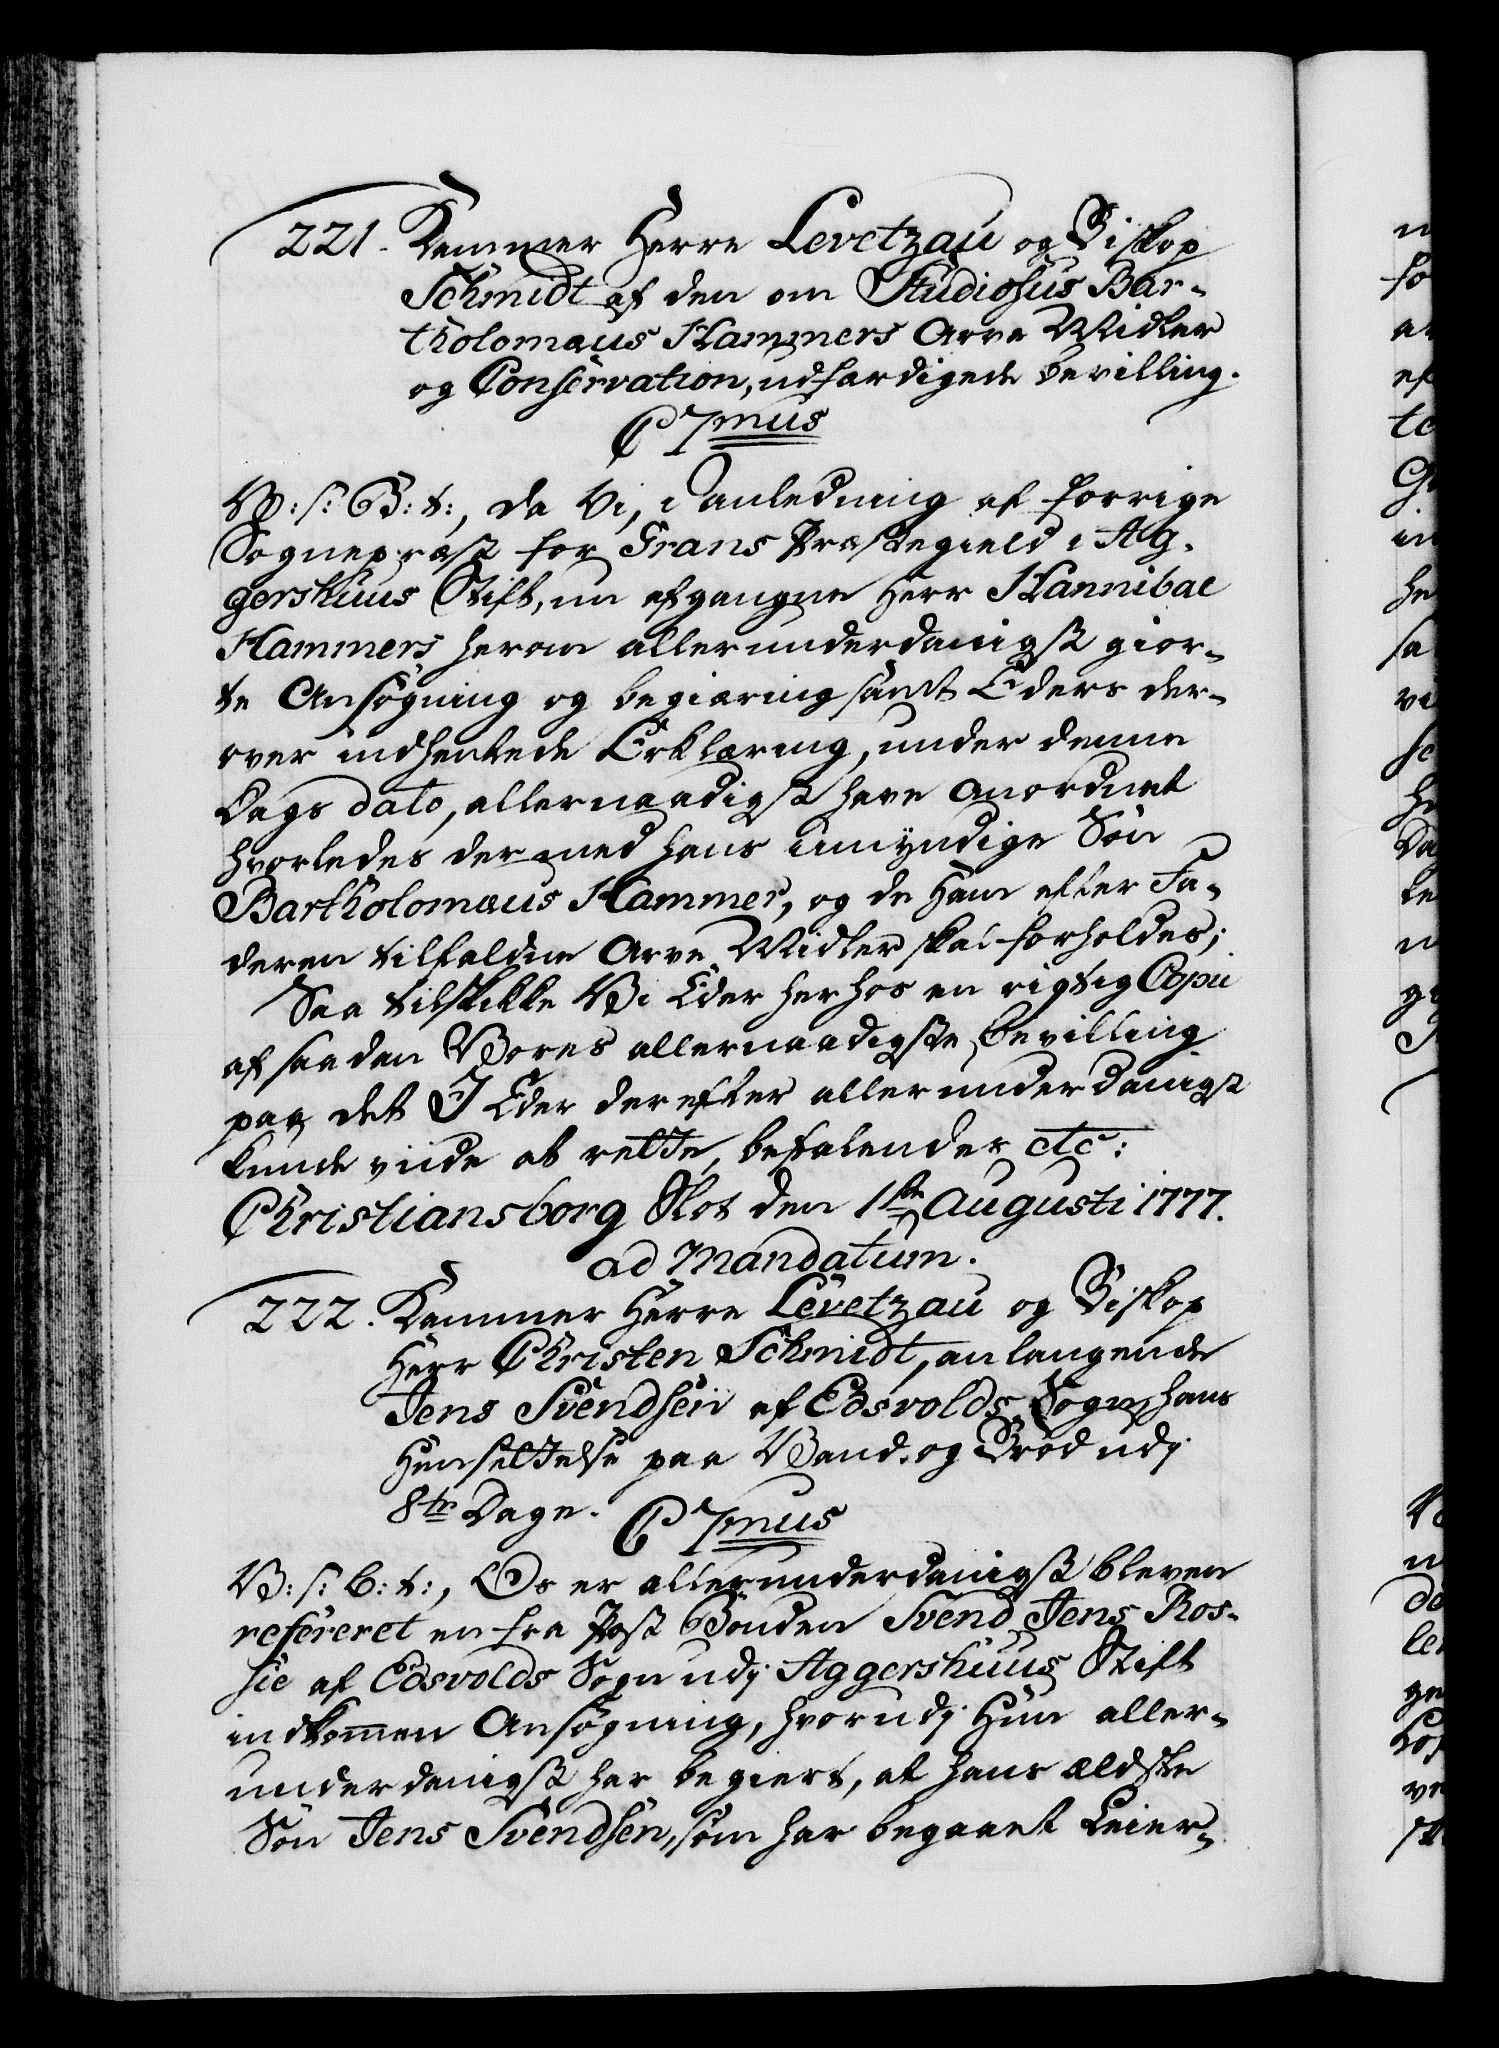 221. Kammer Herre Levetzau og Biskop
Schmidt af den om Studiosus Bar-
tholomæus Hammers Arve Midler
og Conservation, udfærdigede bevilling.
C 7mus
V: s: G: t:, da Vi, i anledning af forrige
Sognepræst for Grans Præstegield i Ag-
gershuus Stift, nu afgangne Herr Hannibal
Hammers herom allerunderdanigst gior-
te Ansøgning og begiæring samt Eders der-
over indhentede Erklæring, under denne
Dags dato, allernaadigst have anordnet
hvorledes der med hans umyndige Søn
Bartholomæus Hammer, og de ham efter Fa-
deren tilfaldne Arve Midler skal forholdes;
Saa tilskikke Vi Eder herhos en rigtig Copii
af saadan Vores allernaadigste bevilling
paa det I Eder derefter allerunderdanigst
kunde viide at rette, befalendes etc:
Christiansborg Slot den 1ste Augusti 1777.
ad Mandatum.
222. Kammer Herre Levetzau og Biskop
Herr Christen Schmidt, anlangende
Jens Svendsen af Edsvolds Sogn hans
Hensettelse paa Vand og Brød udj
8te Dage.
C 7mus
V: s: G: t:, Os er allerunderdanigst bleven
refereret en fra Post Bonden Svend Jens Ros-
sie af Edsvolds Sogn udj Aggershuus Stift
indkommen Ansøgning, hvorudj Hun aller-
underdanigst har begiert, at hans ældste
Søn Jens Svendsen, som har begaaet Leier-